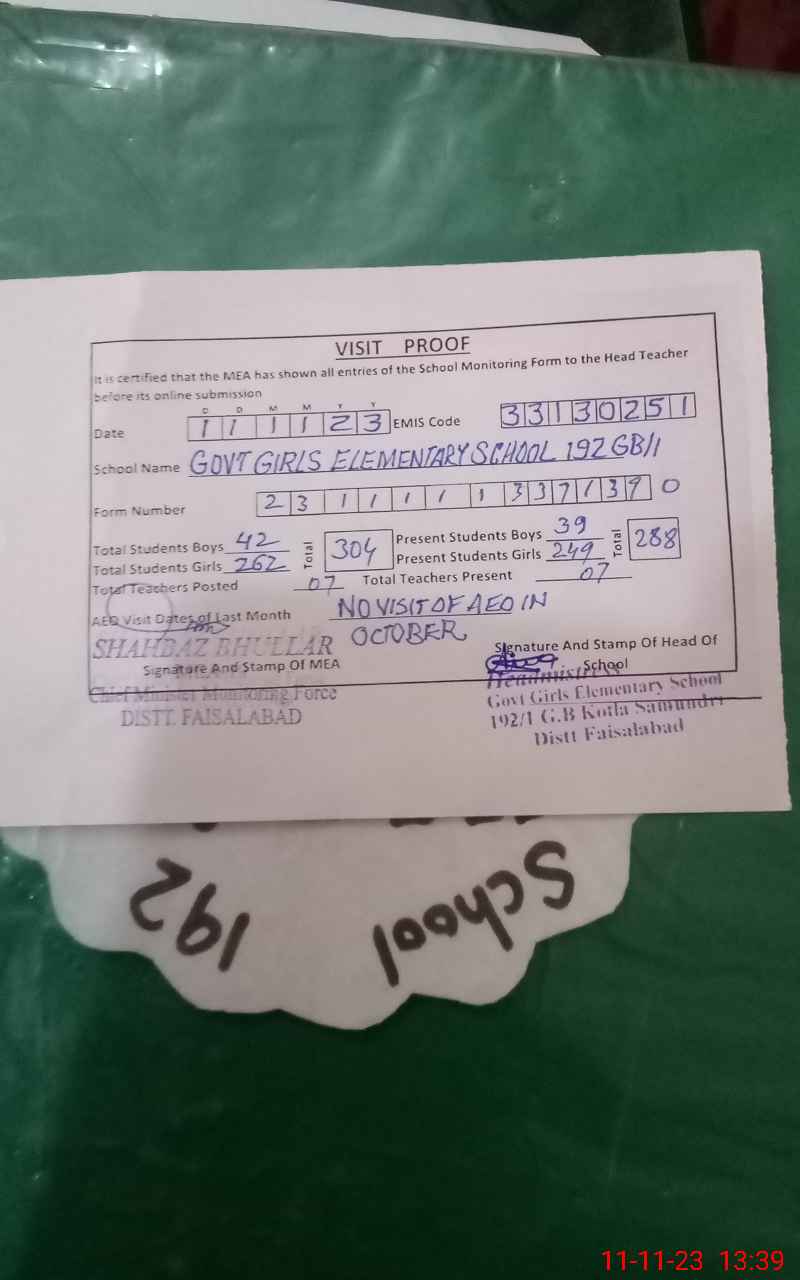 VISIT PROOF
It is certified that the MEA has shown all entries of the School Monitoring Form to the Head Teacher
before its online submission
D D M M Y Y
Date 1 1 1 1 2 3 EMIS Code 3 3 1 3 0 2 5 1
School Name GOVT GIRLS ELEMENTARY SCHOOL 192 GB/1
Form Number 2 3 1 1 1 1 1 3 3 7 1 3 9 0
Total Students Boys 42 Total 304 Present Students Boys 39 Total 288
Total Students Girls 262 Present Students Girls 249
Total Teachers Posted 07 Total Teachers Present 07
AEO Visit Dates of Last Month NO VISIT OF AEO IN
OCTOBER
SHAHBAZ BHULLAR
Signature And Stamp Of MEA
Chief Minister Monitoring Force
DISTT. FAISALABAD
Signature And Stamp Of Head Of
School
Headmistress
Govt Girls Elementary School
192/1 G.B Kotla Samundri
Distt Faisalabad
School 192
11-11-23 13:39